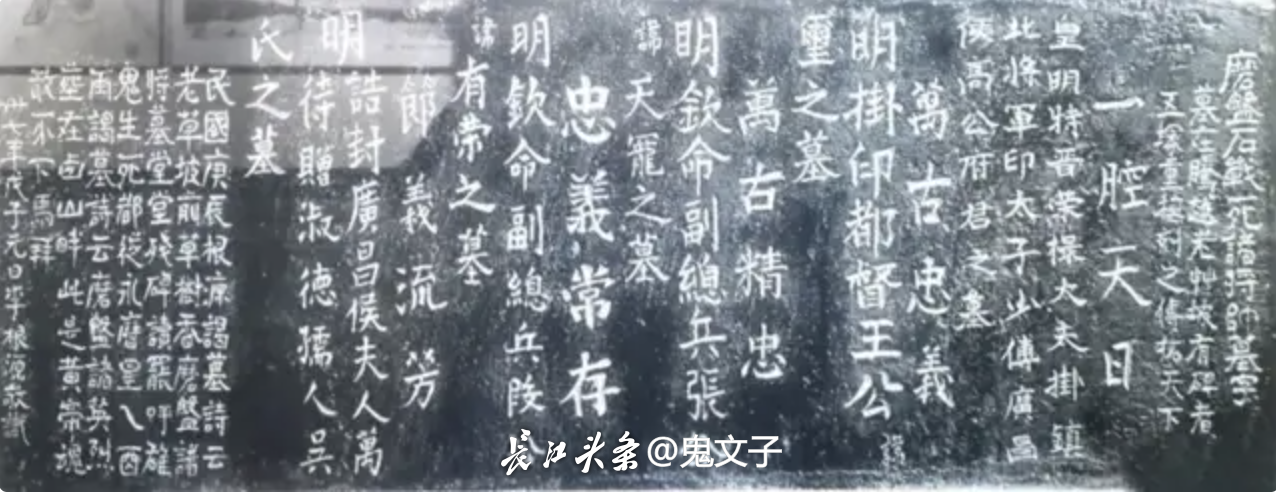 磨盤石戰死諸將帥墓字
墓在騰越老艸坡有碑者
五塚重摹刻之傳拓天下
一腔天日
皇明特晉榮祿大夫掛鎮
北將軍印太子少傅廣昌
侯高公府君之墓
萬古忠義
明掛印都督王公諱
璽之墓
萬古精忠
明欽命副總兵張
諱天寵之墓
忠義常存
明欽命副總兵段公
諱有榮之墓
節義流芳
明誥封廣昌侯夫人萬
待贈淑德孺人吳
氏之墓
民國庚辰根源謁墓詩云
老草坡前草樹香磨盤諸
將墓堂堂殘碑讀罷呼雄
鬼生死都從永曆皇乙酉
再謁墓詩云磨盤諸英烈
在山畔此是黃帝魂
敢不下馬拜
七年戊子元日李根源敬識
长江头条@鬼文子